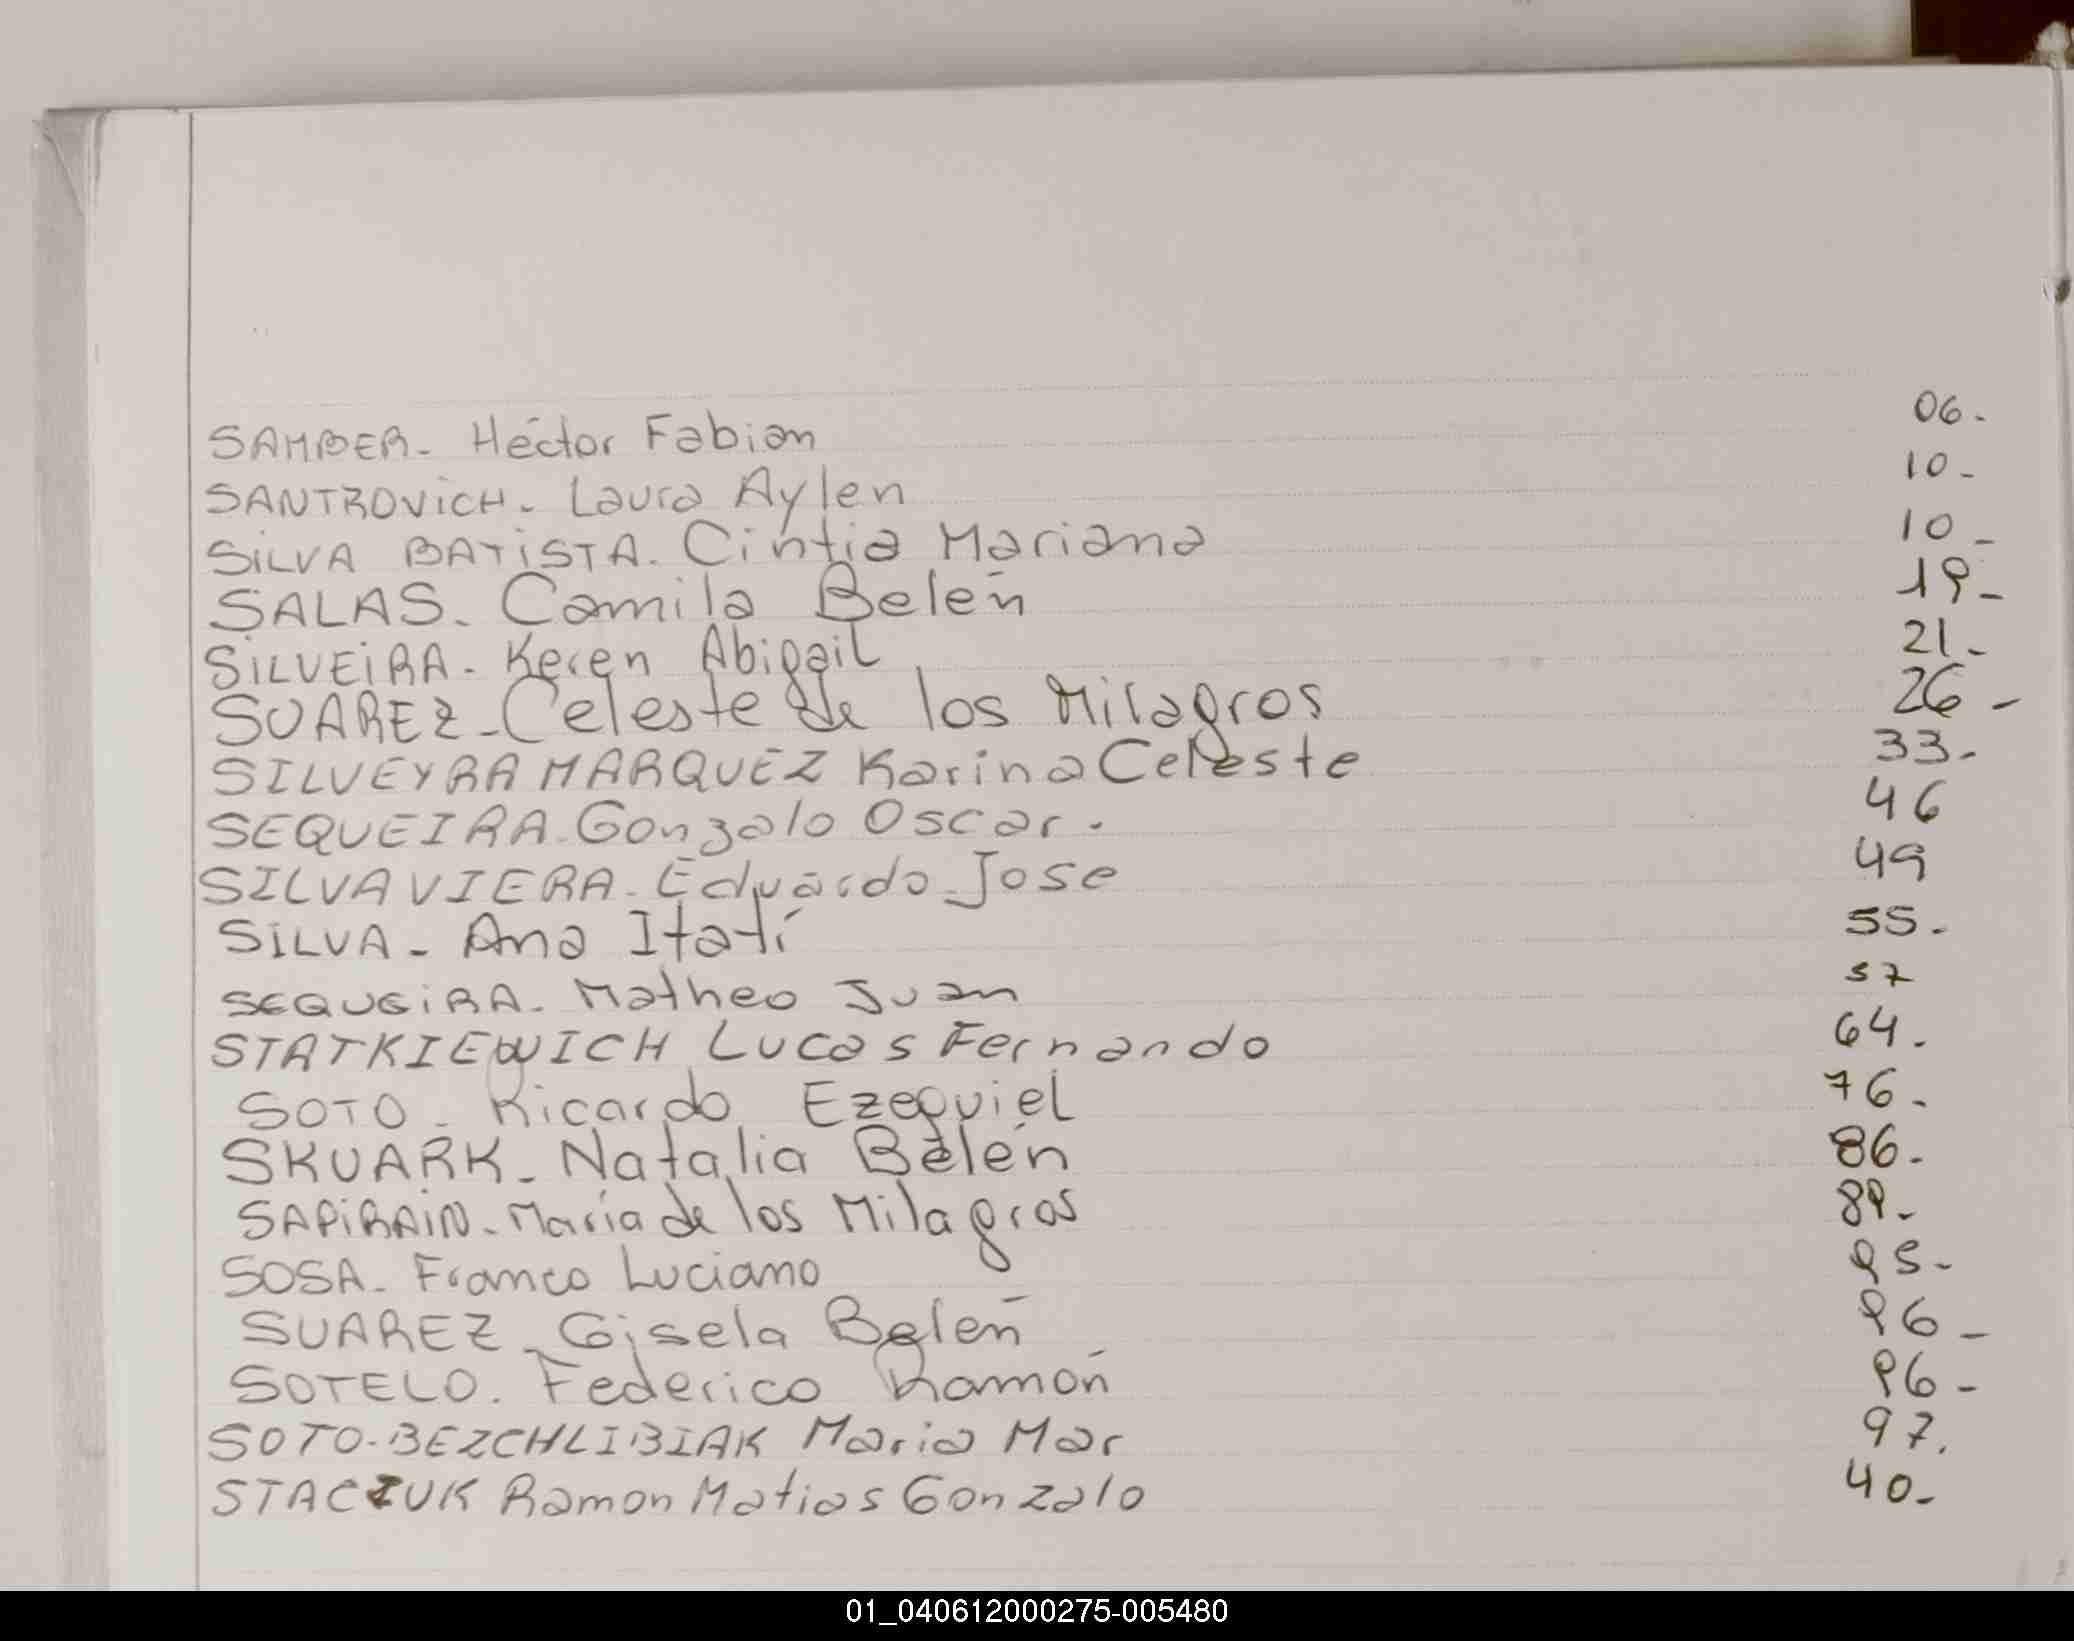 SAMBER. Héctor Fabian 06.
SANTROVICH. Laura Aylen 10.
SILVA BATISTA. Cintia Mariana 10.
SALAS. Camila Belén 19.
SILVEIRA. Keren Abigail 21.
SUAREZ. Celeste de los Milagros 26.
SILVEYRA MARQUEZ Karina Celeste 33.
SEQUEIRA. Gonzalo Oscar. 46
SILVA VIERA. Eduardo Jose 49
SILVA. Ana Itatí 55.
SEQUEIRA. Matheo Juan 57
STATKIEWICH Lucas Fernando 64.
SOTO. Ricardo Ezequiel 76.
SKUARK. Natalia Belén 86.
SAPIRAIN. María de los Milagros 89.
SOSA. Franco Luciano 95.
SUAREZ. Gisela Belén 96.
SOTELO. Federico Ramón 96.
SOTO-BEZCHLIBIAK Maria Mar 97.
STACZUK Ramon Matias Gonzalo 40.
01_040612000275-005480